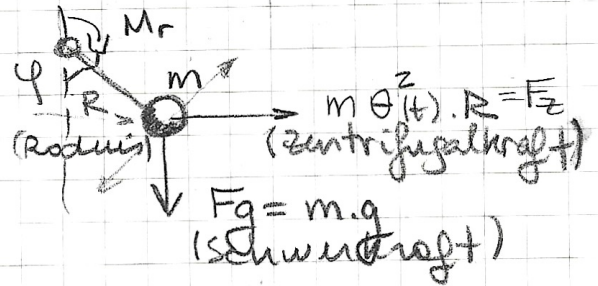 Mr
φ
m
R
(Radius)
m θ²(t) . R = Fz
(Zentrifugalkraft)
Fg = m.g
(Schwerkraft)